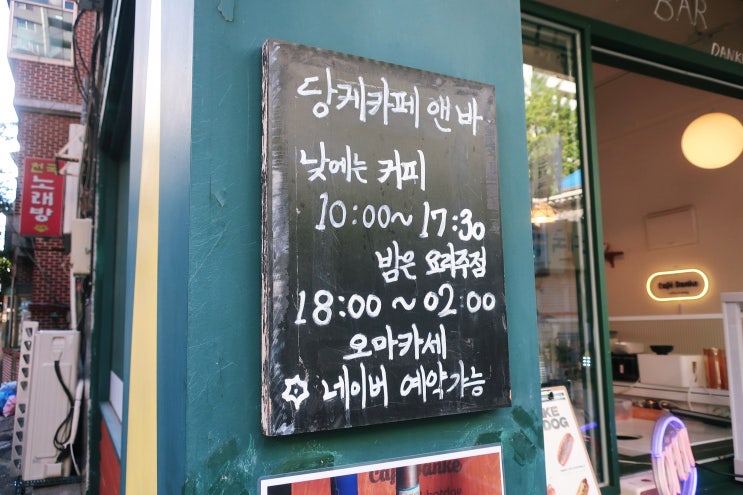 당케카페앤바
낮에는 커피
10:00~17:30
밤은 요리주점
18:00~02:00
오마카세
네이버 예약가능
노래방
BAR
DANKE
Café Danke
Café Danke
hotdog
KE
DOG